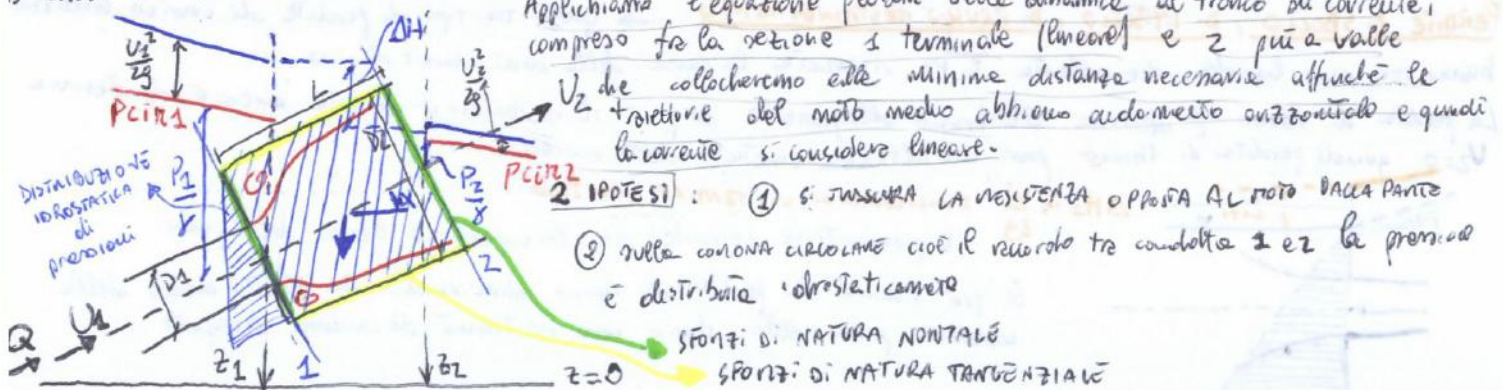 Applichiamo l'equazione globale della dinamica al tronco di corrente,
compreso fra la sezione 1 terminale (lineare) e 2 più a valle
che collocheremo alla minima distanza necessaria affinché le
traiettorie del moto medio abbiano andamento orizzontale e quindi
la corrente si considera lineare.
2 IPOTESI : ① SI TRASCURA LA RESISTENZA OPPOSTA AL MOTO DALLA PARETE
② sulla CORONA CIRCOLARE cioè il raccordo tra condotta 1 e 2 la pressione
è distribuita idrostaticamente
SFORZI DI NATURA NORMALE
SFORZI DI NATURA TANGENZIALE
U1²/2g
ΔH
U2²/2g
L
U2
PCIR1
PCIR2
DISTRIBUZIONE
IDROSTATICA
di
pressioni
P1/γ
P2/γ
D2
D1
Q
U1
z1
1
z2
2
z=0